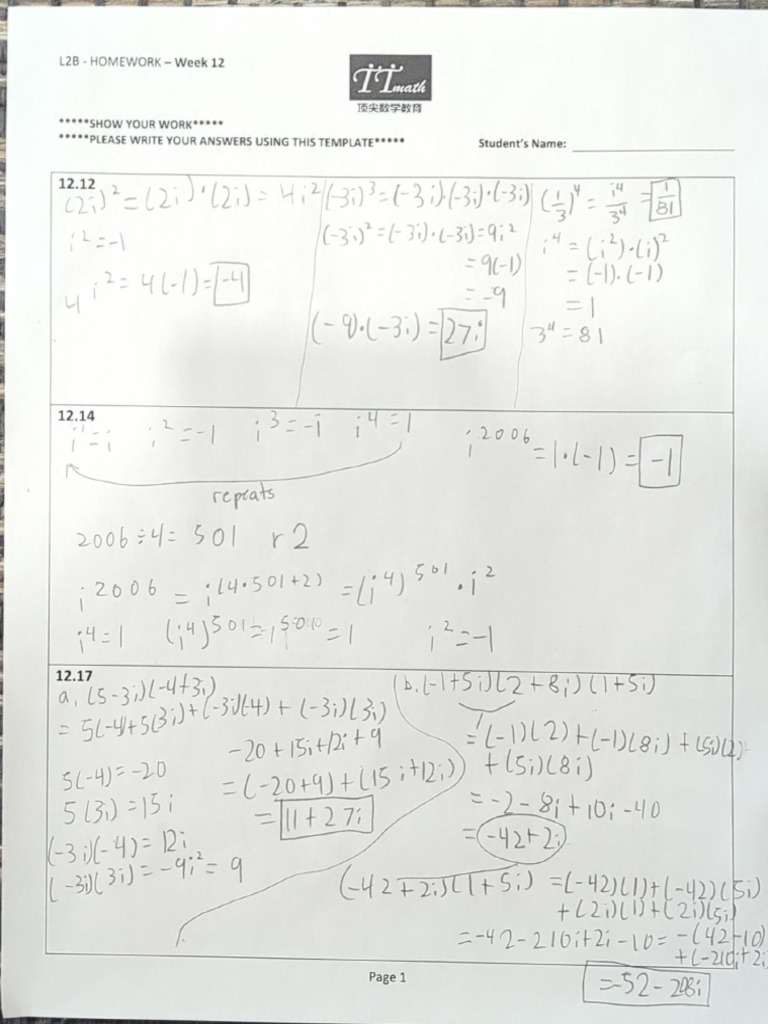 L2B - HOMEWORK – Week 12
TTmath
顶尖数学教育
*****SHOW YOUR WORK*****
*****PLEASE WRITE YOUR ANSWERS USING THIS TEMPLATE*****
Student's Name:
12.12
(2i)² = (2i)·(2i) = 4i²
i² = -1
4i² = 4(-1) = -4
(-3i)³ = (-3i)·(-3i)·(-3i)
(-3i)² = (-3i)·(-3i) = 9i²
= 9(-1)
= -9
(-9)·(-3i) = 27i
(1/3)⁴ = i⁴/3⁴ = 1/81
i⁴ = (i²)·(i)²
= (-1)·(-1)
= 1
3⁴ = 81
12.14
i¹ = i i² = -1 i³ = -i i⁴ = 1
repeats
i²⁰⁰⁶ = 1·(-1) = -1
2006 ÷ 4 = 501 r 2
i²⁰⁰⁶ = i^(4·501+2) = (i⁴)⁵⁰¹ · i²
i⁴ = 1 (i⁴)⁵⁰¹ = 1 = 1 i² = -1
12.17
a. (5-3i)(-4+3i)
= 5(-4)+5(3i)+(-3i)(-4) + (-3i)(3i)
-20 + 15i + 12i + 9
= (-20+9) + (15i+12i)
= 11 + 27i
5(-4) = -20
5(3i) = 15i
(-3i)(-4) = 12i
(-3i)(3i) = -9i² = 9
b. (-1+5i)(2+8i)(1+5i)
= (-1)(2) + (-1)(8i) + (5i)(2)
+ (5i)(8i)
= -2 - 8i + 10i - 40
= -42 + 2i
(-42 + 2i)(1 + 5i) = (-42)(1) + (-42)(5i)
+ (2i)(1) + (2i)(5i)
= -42 - 210i + 2i - 10 = -(42-10)
+ (-210i + 2i
= -52 - 208i
Page 1